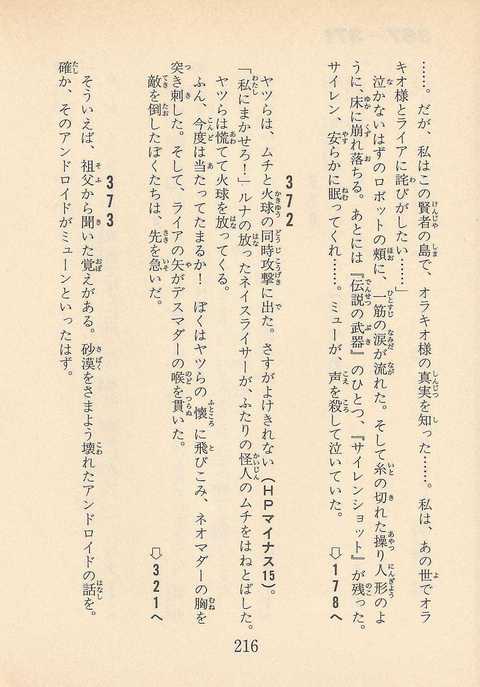 ……。だが、私はこの賢者の島で、オラキオ様の真実を知った……。私は、あの世でオラ
キオ様とライアに詫びがしたい……」
泣かないはずのロボットの頬に、一筋の涙が流れた。そして糸の切れた操り人形のよ
うに、床に崩れ落ちる。あとには『伝説の武器』のひとつ、『サイレンショット』が残った。
サイレン、安らかに眠ってくれ……。ミューが、声を殺して泣いていた。
⇨178へ
372
ヤツらは、ムチと火球の同時攻撃に出た。さすがよけきれない(HPマイナス15)。
「私にまかせろ!」ルナの放ったネイスライサーが、ふたりの怪人のムチをはねとばした。
ヤツらは慌てて火球を放ってくる。
ふん、今度は当たってたまるか! ぼくはヤツらの懐に飛びこみ、ネオマダーの胸を
突き刺した。そして、ライアの矢がデスマダーの喉を貫いた。
敵を倒したぼくたちは、先を急いだ。
⇨321へ
373
そういえば、祖父から聞いた覚えがある。砂漠をさまよう壊れたアンドロイドの話を。
確か、そのアンドロイドがミューンといったはず。
216